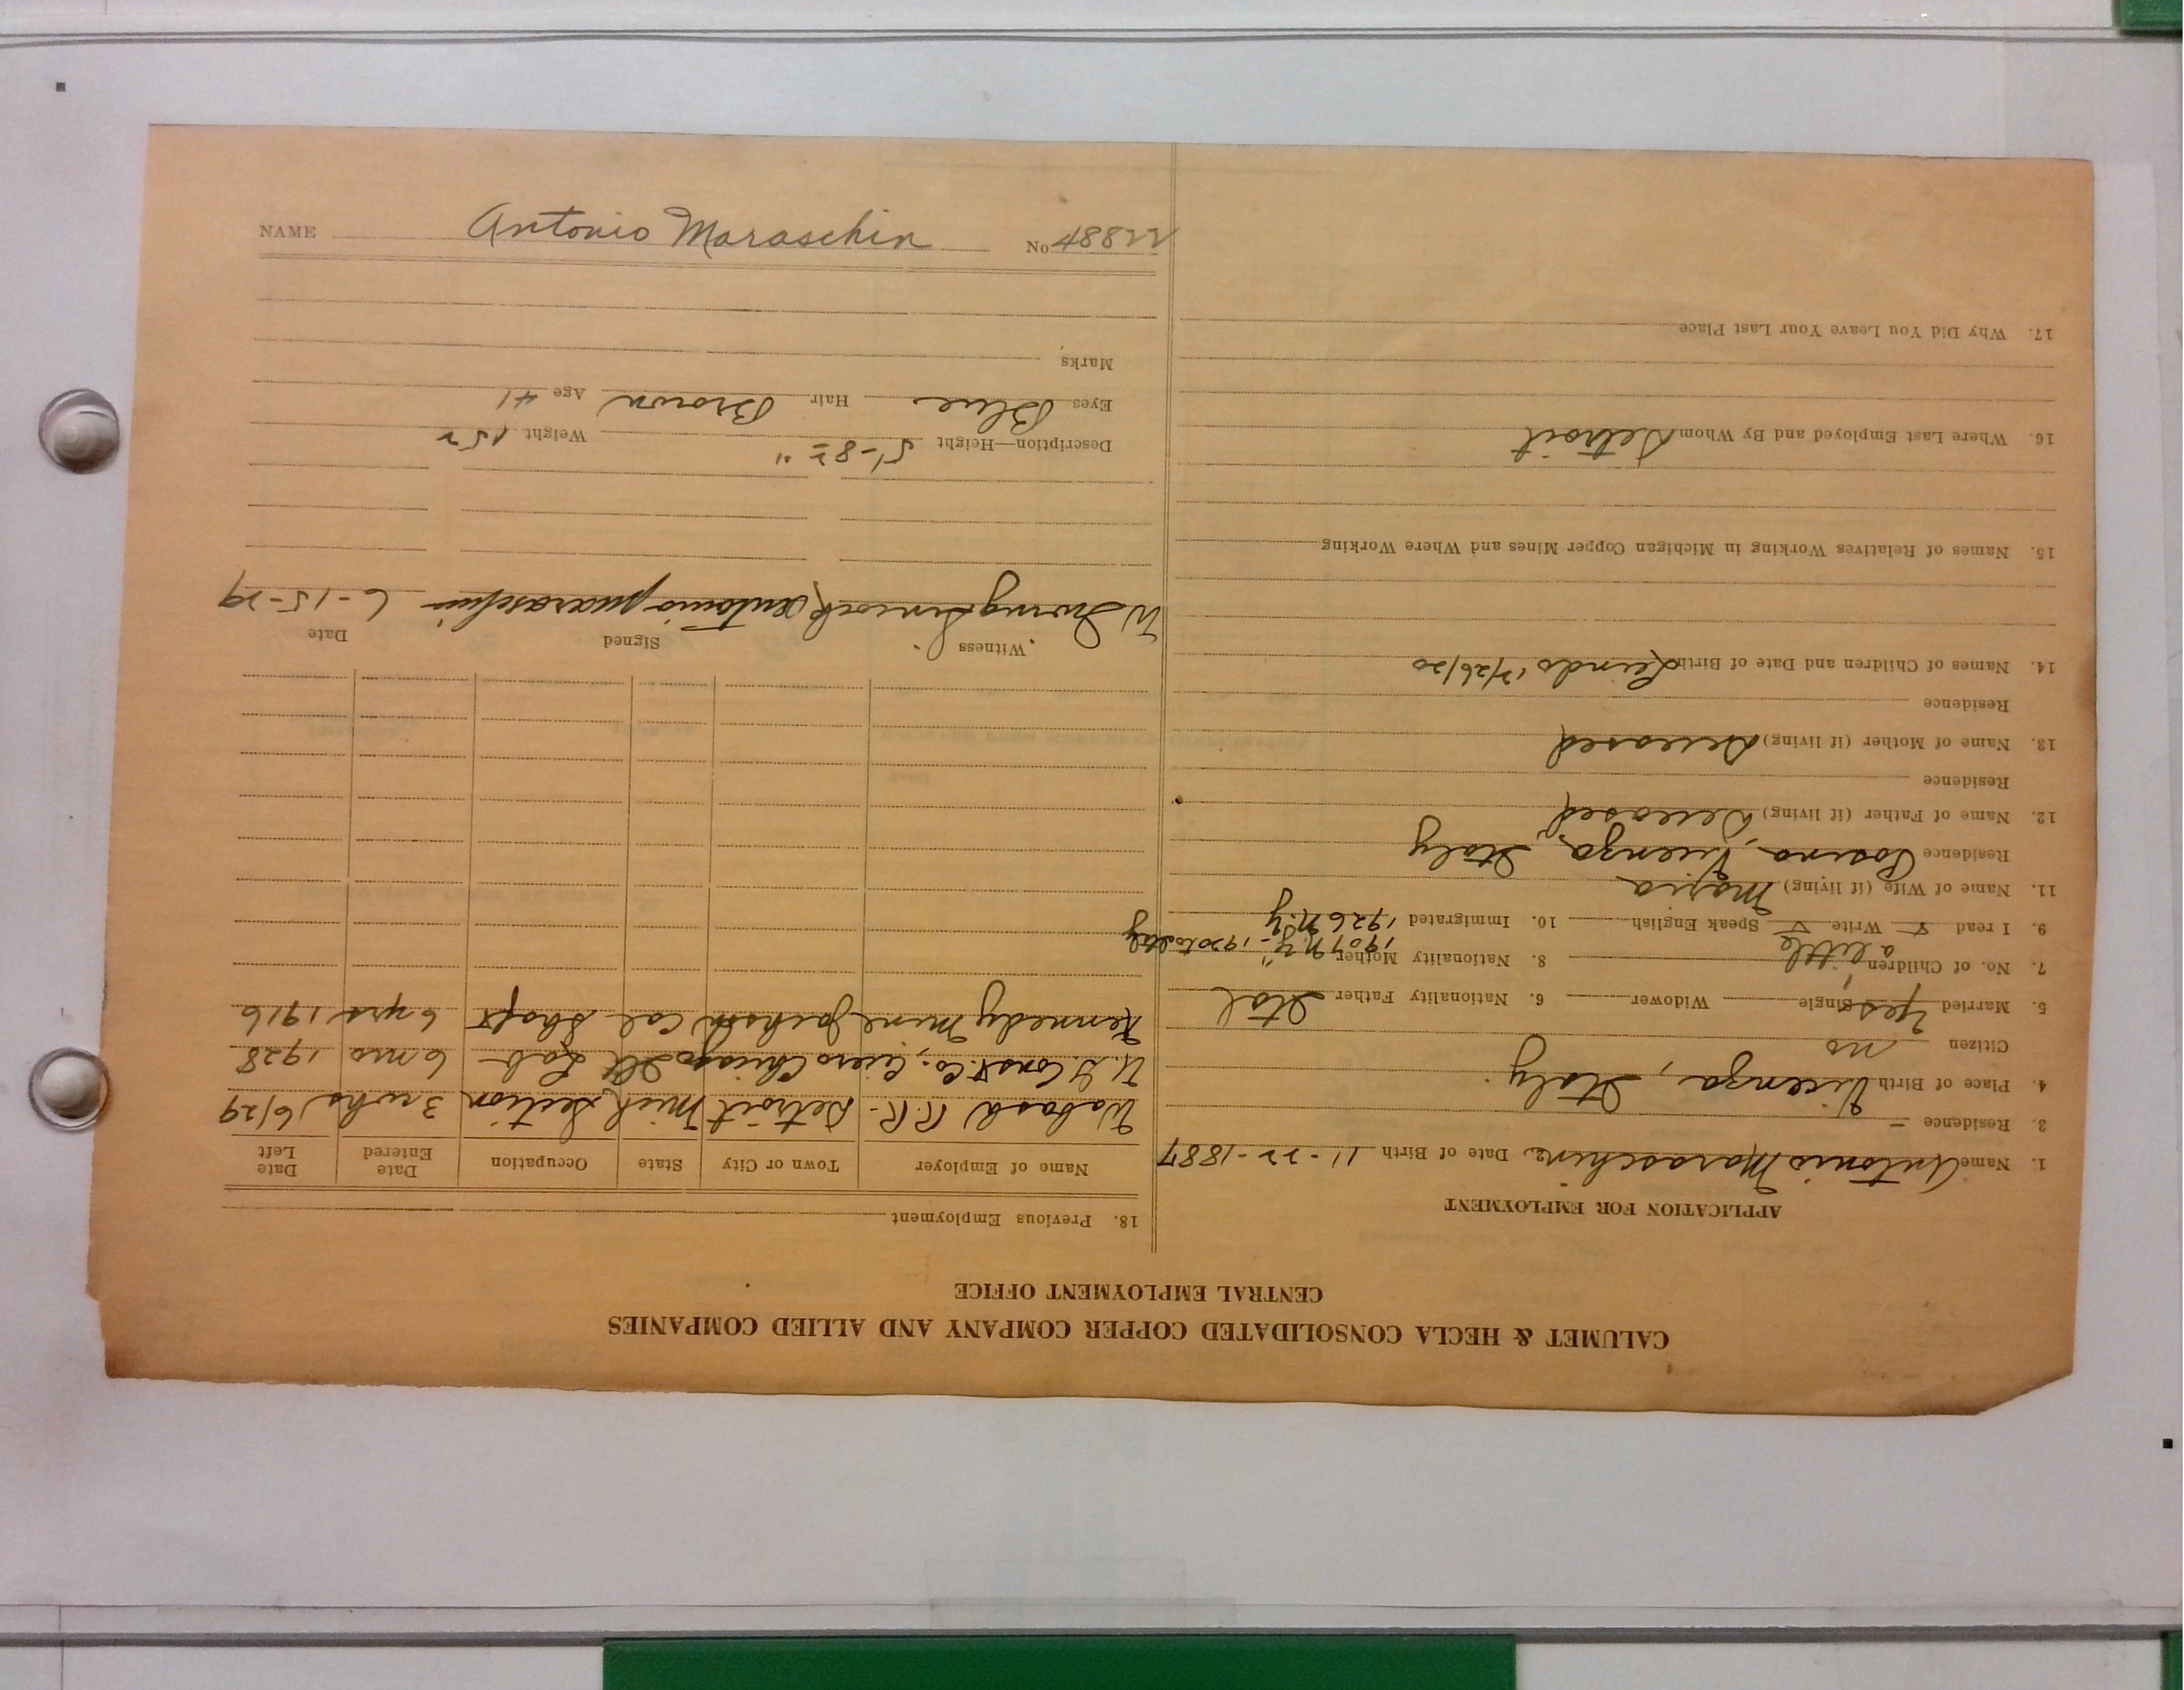 CALUMET & HECLA CONSOLIDATED COPPER COMPANY AND ALLIED COMPANIES
CENTRAL EMPLOYMENT OFFICE
APPLICATION FOR EMPLOYMENT
1. Name Antonio Maraschin Date of Birth 11-22-1887
3. Residence –
4. Place of Birth Vicenza, Italy
Citizen no
5. Married yes Single Widower 6. Nationality Father Ital
7. No. of Children 1 8. Nationality Mother "
1909 N.Y. - 1920 to Italy
a little
9. I read √ Write √ Speak English 10. Immigrated 1926 N.Y.
11. Name of Wife (if living) Maria
Residence Posina, Vicenza, Italy
12. Name of Father (if living) Deceased
Residence
13. Name of Mother (if living) Deceased
Residence
14. Names of Children and Date of Birth 12/26/20
15. Names of Relatives Working in Michigan Copper Mines and Where Working
16. Where Last Employed and By Whom Detroit
17. Why Did You Leave Your Last Place
18. Previous Employment
Name of Employer Town or City State Occupation Date Entered Date Left
Wabash R.R. Detroit Mich Section 3 wks 6/29
Const. Co. Cicero Chicago Ill Lab 6 mos 1928
Kennedy Mine Jackson Cal Shaft 6 yrs 1916
Witness Signed Date
W Antonio Maraschin 6-15-29
Description—Height 5'-8½" Weight 152
Eyes Blue Hair Brown Age 41
Marks
NAME Antonio Maraschin No 48822